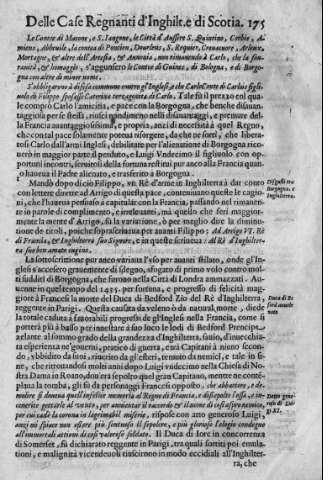 Delle Case Regnanti d'Inghil. e di Scotia. 175
le Contee di Macone, e S. Iangone, le Città d'Aussere S. Quintino, Corbie, A-
miens, Abbeuile, la contea di Pontieu, Dourlens, S. Requier, Creuacuore, Arleux,
Mortagne, & altre dell'Artesia, & Annonia, non rimanendo à Carlo, che la so-
uranità, & homaggio, s'aggiunsero le Contee di Guines, di Bologna, e di Borgo-
gna con altre di minor conto.
S'obbligauono à difesa commune contro gl'Inglesi, e che Carlo Conte di
gnolo di Filippo sposasse Caterina terzogenita di Carlo. Tale fù il prezzo col qua-
le comprò Carlo l'amicitia, e pace con la Borgogna, che benche disauan-
taggiosa per se stessa, riuscì nondimeno nello disunamento, e premure del-
la Francia auantaggiosissima, e propria, anzi di necessità à quel Regno,
che con tal pace solamente poteua risorgere, da che be forsi, che libera-
tosi Carlo dall'armi Inglesi, debilitate per l'alienatione di Borgogna ricu-
però in maggior parte il perduto, e Luigi Vndecimo il figliuolo con op-
portuni incontri, seruitosi della fortuna restituì pur anco alla Francia quan-
to haueua il Padre alienato, e trasferito a Borgogna.
Mandò dopo di ciò Filippo, vn Rè d'arme in Inghilterra à dar conto
con lettere dirette ad Arrigo di questa pace, continuando queste le cagio-
ni, che l'haueua persuaso à capitolar con la Francia, passando nel rimanen-
te in parole di complimento, e irreleuanti, ma quello che ferì maggior-
mente la mente d'Arrigo, fù la variatione, ò per meglio dire la diminu-
tione de titoli, poiche soprascriueua per auanti Filippo: Ad Arrigo VI. Rè
di Francia, & Inghilterra suo Signore, e in queste scriueua: Al Rè d'Inghilter-
ra suo ben amato cugino.
La sottoscrittione pur anco variata l'vso per auanti stilato, onde gl'In-
glesi s'accesero grauemente di sdegno, sfogato di primo volo contro mol-
ti sudditi di Borgogna, che furono nella Città di Londra ammazzati. Au-
uenne in questo tempo del 1435. per fortuna, e progresso di felicità mag-
giore à Francesi la morte del Duca di Bedford Zio del Rè d'Inghilterra,
reggente in Parigi. Questa causata da veleno ò da natural morte, diede
la totale caduta à fauorabili progressi de gl'Inglesi nella Francia, come si
porterà più à basso per innestare à suo loco le lodi di Bedford Principe,
arlante al sommo grado della grandezza d'Inghilterra, sauio, d'inuecchia-
ta esperienza ne' gouerni, pratico di guerra, e trà Capitani à niuno secon-
do, vbbidito da suoi, riuerito da gl'esteri, temuto da nemici, e tale in fi-
ne, che ritrouandosi molti anni dopo Luigi vndecimo nella Chiesa di No-
stra Dama in Roano, doue era sepolto quel gran Capitano, mentre ne contè-
plaua la tomba, gli fù da personaggi Francesi opposto, che abbattere, e de-
molire si doueua quell'infelice memoria al Regno di Francia, e dispoglier l'ossa, e in-
cenerite gettarle al vento, per annientar il ricordo & il nome di sì aspro nemico,
per cui vedea la corona in lagrimabil miseria, rispose con atto generoso Luigi,
anzi mi spiace non essere più sontuoso il sepolcro, e più glorioso l'elogio condegno
all'immortali attioni di così valoroso soldato. Il Duca di Iorc in concorrenza
di Somerset, fù dichiarato reggente in Parigi, tra quali sortiti poi emula-
tioni, e malignità vicendeuoli riuscirono in modo eccidiali all'Inghilter-
ra, che
Dispesti trà
Borgogna, e
Inghilterra.
Duca di Be-
ford muore
Detto gene-
roso di Lui-
gi XI.